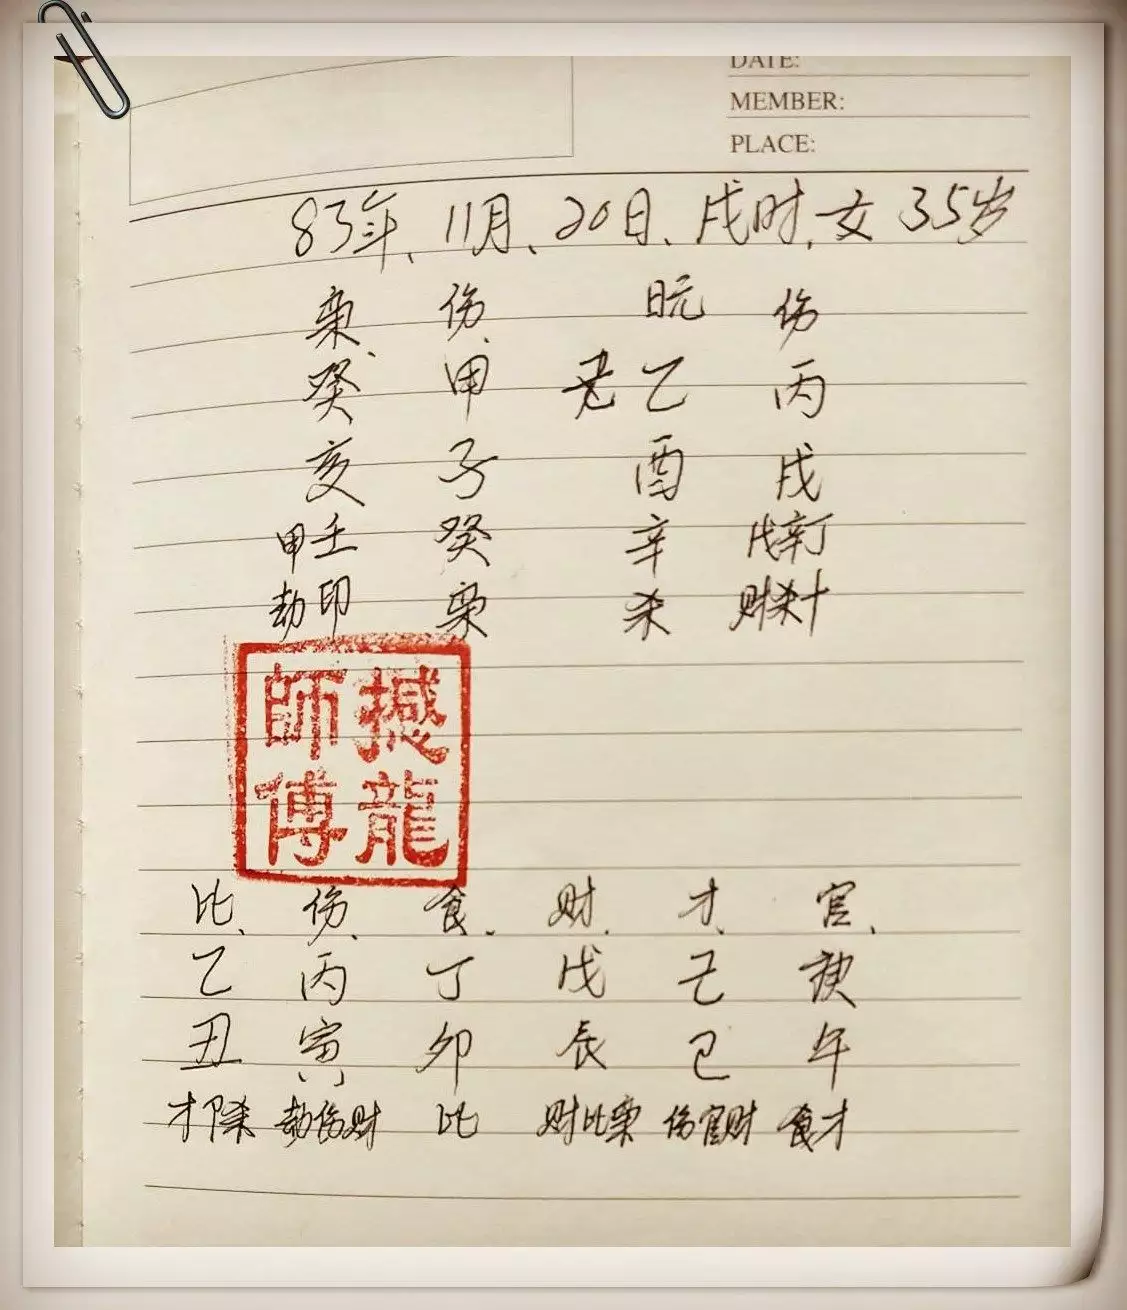 DATE:
MEMBER:
PLACE:
83年、11月、20日、戌时,女 35岁
枭、 伤、 日元 伤
癸 甲 乙 丙
亥 子 酉 戌
甲壬 癸 辛 戊辛丁
劫印 枭 杀 财杀十
師撼
傅龍
比、 伤、 食、 财、 才、 官、
乙 丙 丁 戊 己 庚
丑 寅 卯 辰 巳 午
才卩杀 劫伤财 比 财比枭 伤官财 食才